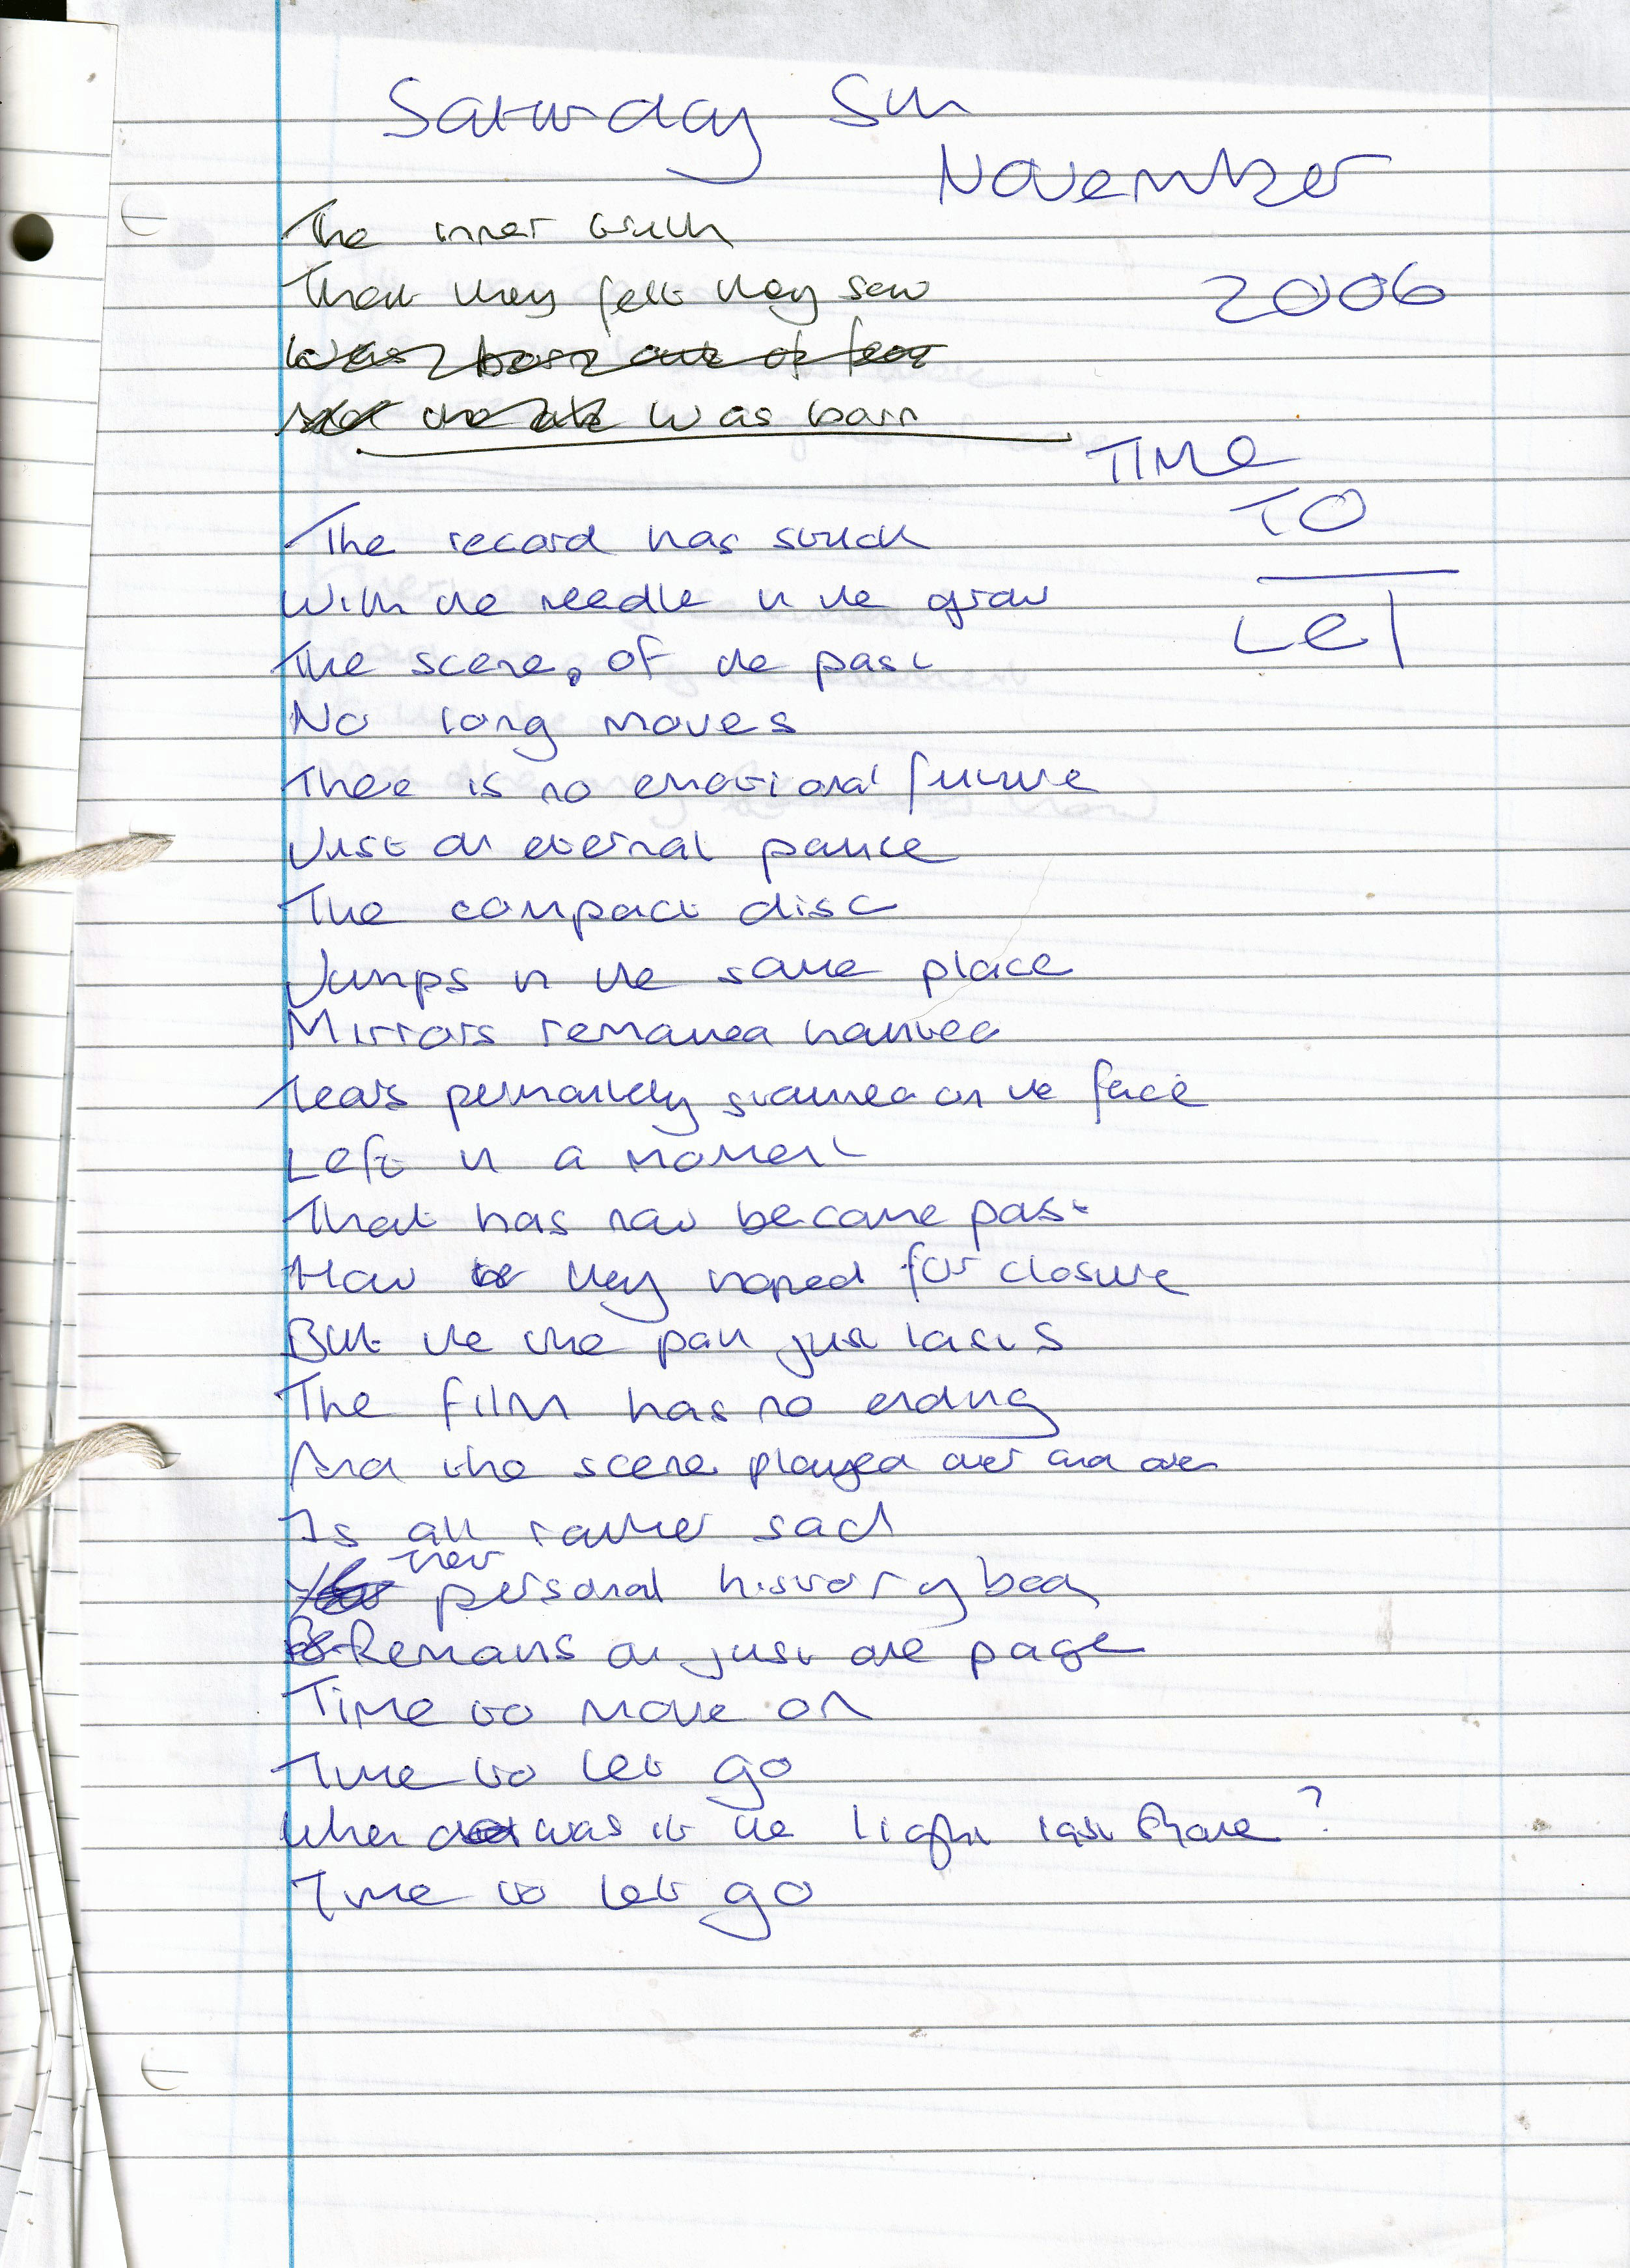 Saturday Sun
November
The inner truth
That they felt they saw
2006
Was born out of fear
was born
TIME
TO
The record has stuck
With the needle in the grov
LET
The scene, of the past
No long moves
There is no emotional future
Just an eternal pause
The compact disc
Jumps in the same place
Mirrors remained haunted
Tears permantely stained on the face
Left in a moment
That has now become past
How they hoped for closure
But the the pain just lasts
The film has no ending
And the scene played over and over
Is all rather sad
Their
personal history book
Remains on just one page
Time to move on
Time to let go
When was it the light last shone?
Time to let go